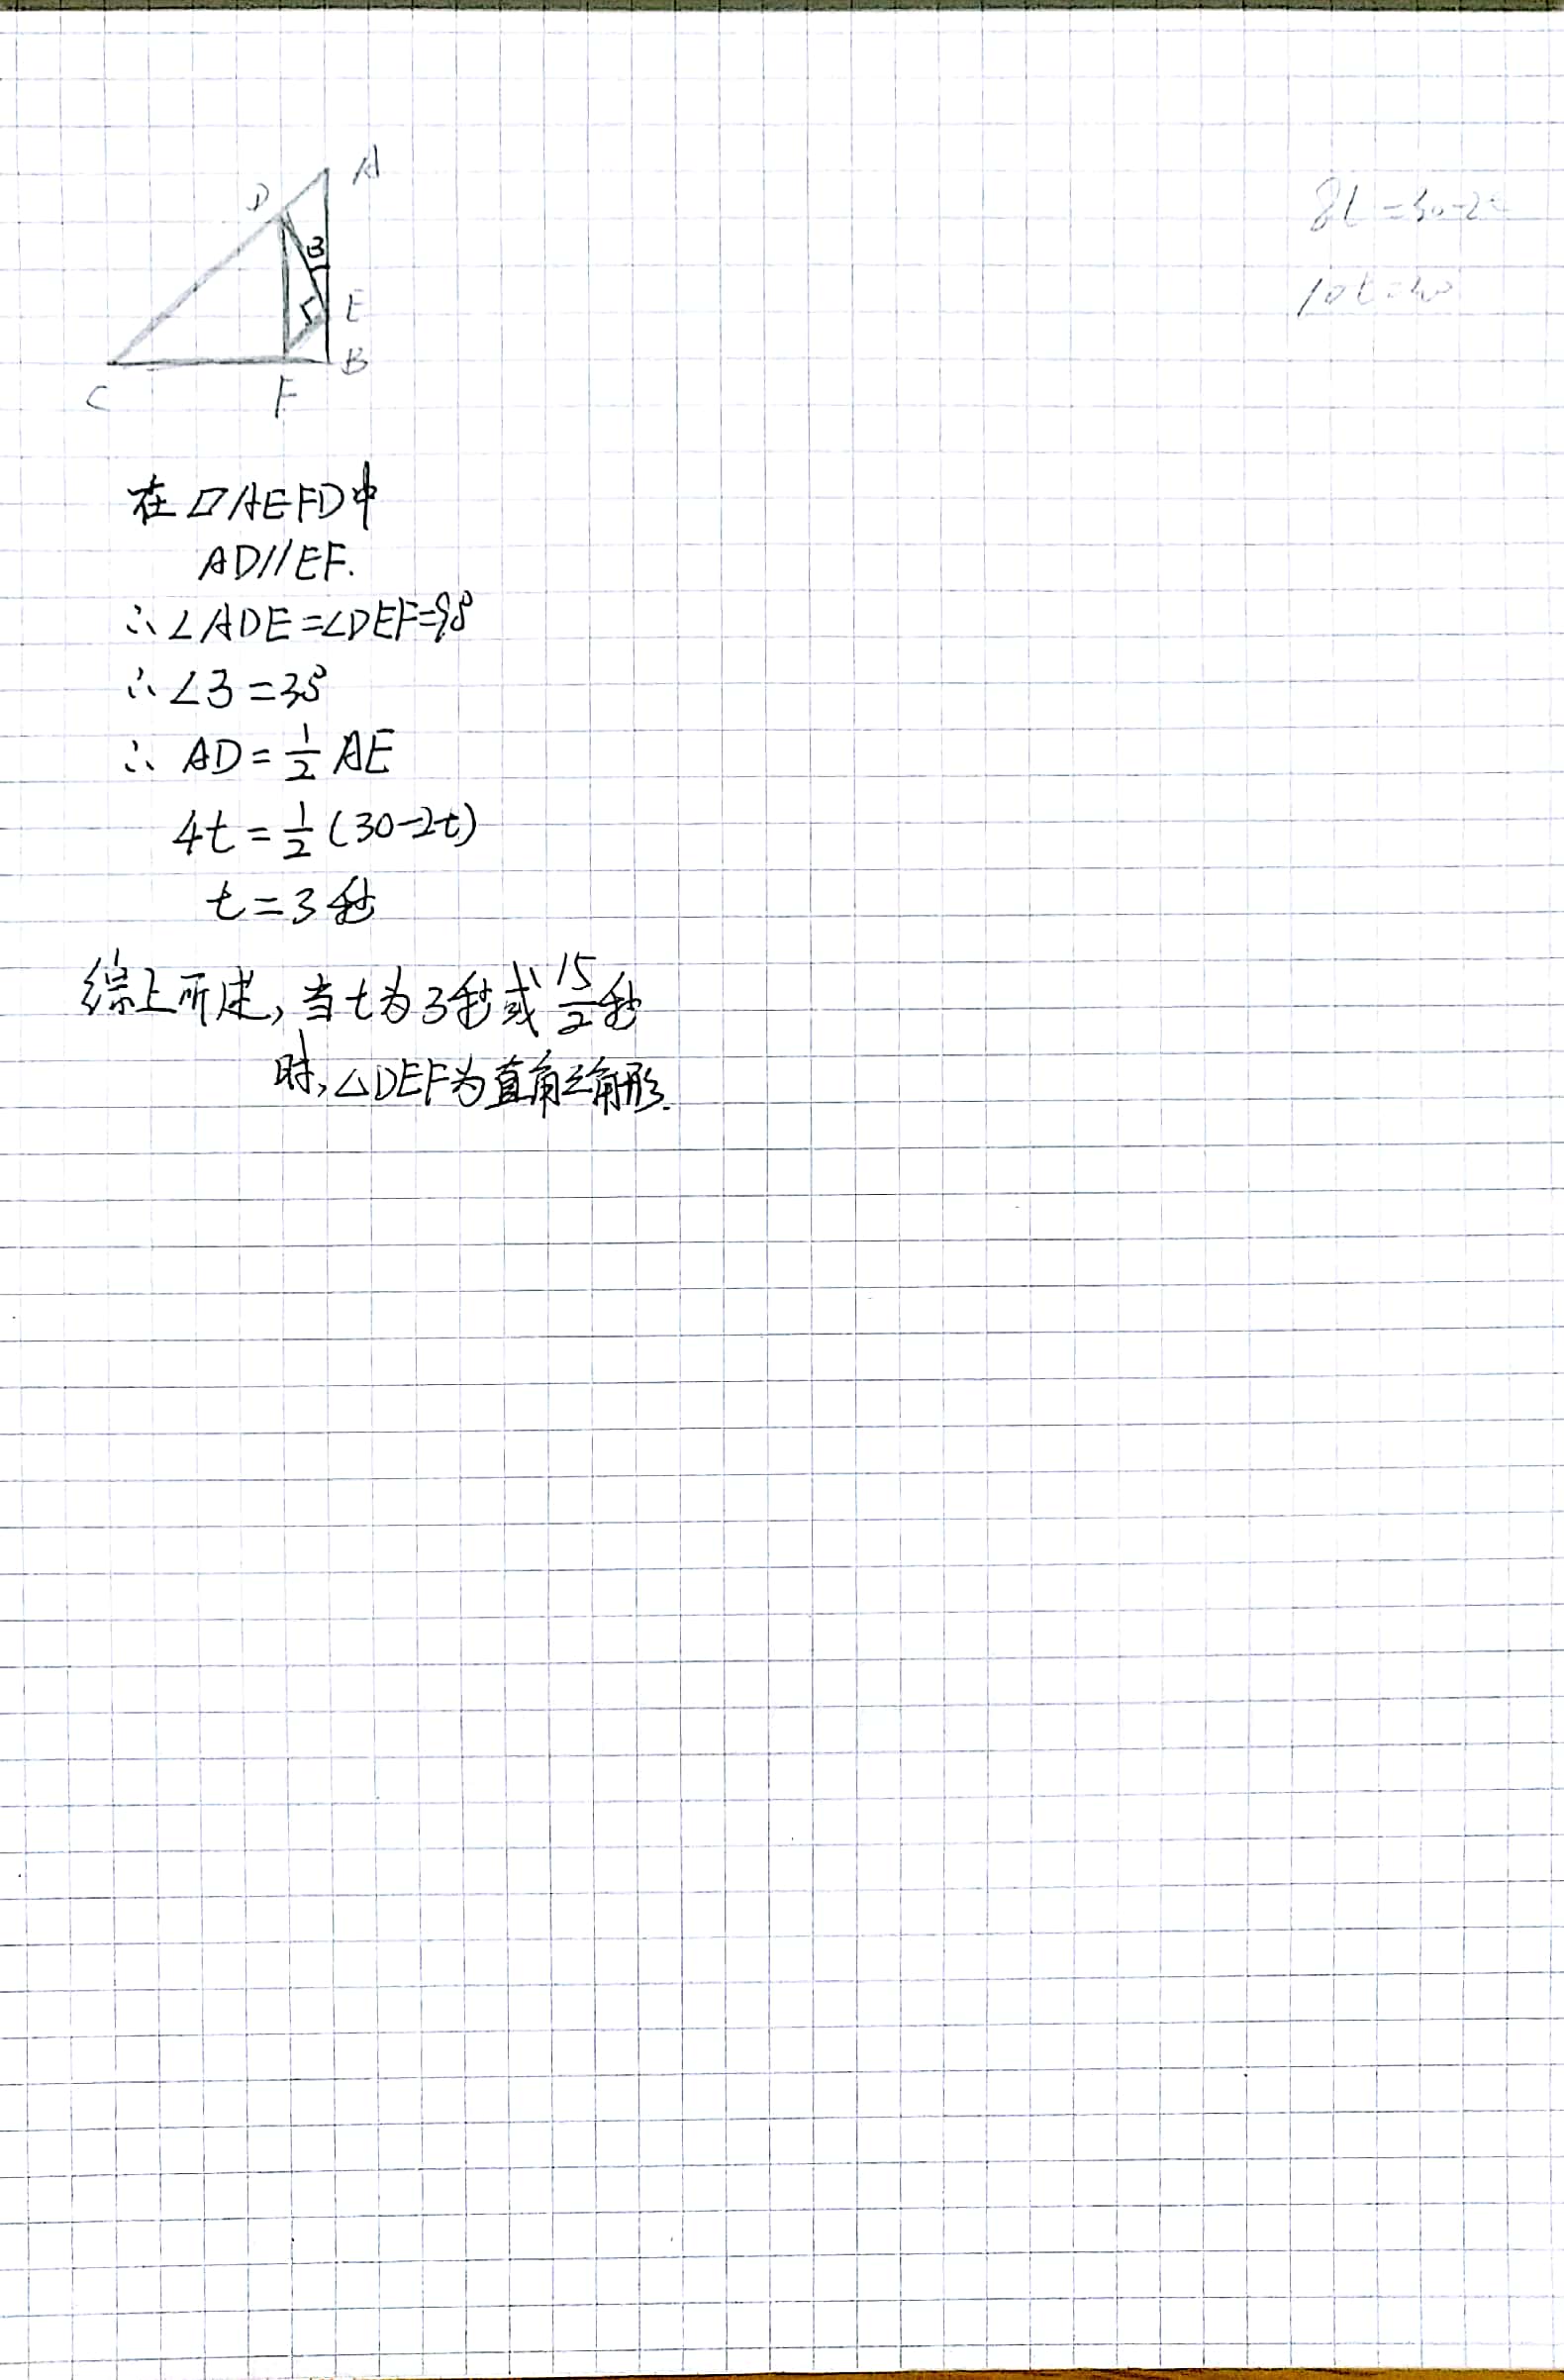 A
D
3
E
B
C
F
8t=30-2t
10t=30
在▱AEFD中
AD//EF.
∴∠ADE=∠DEF=90°
∴∠3=30°
∴ AD=1/2 AE
4t=1/2(30-2t)
t=3秒
综上所述,当t为3秒或15/2秒
时,△DEF为直角三角形.